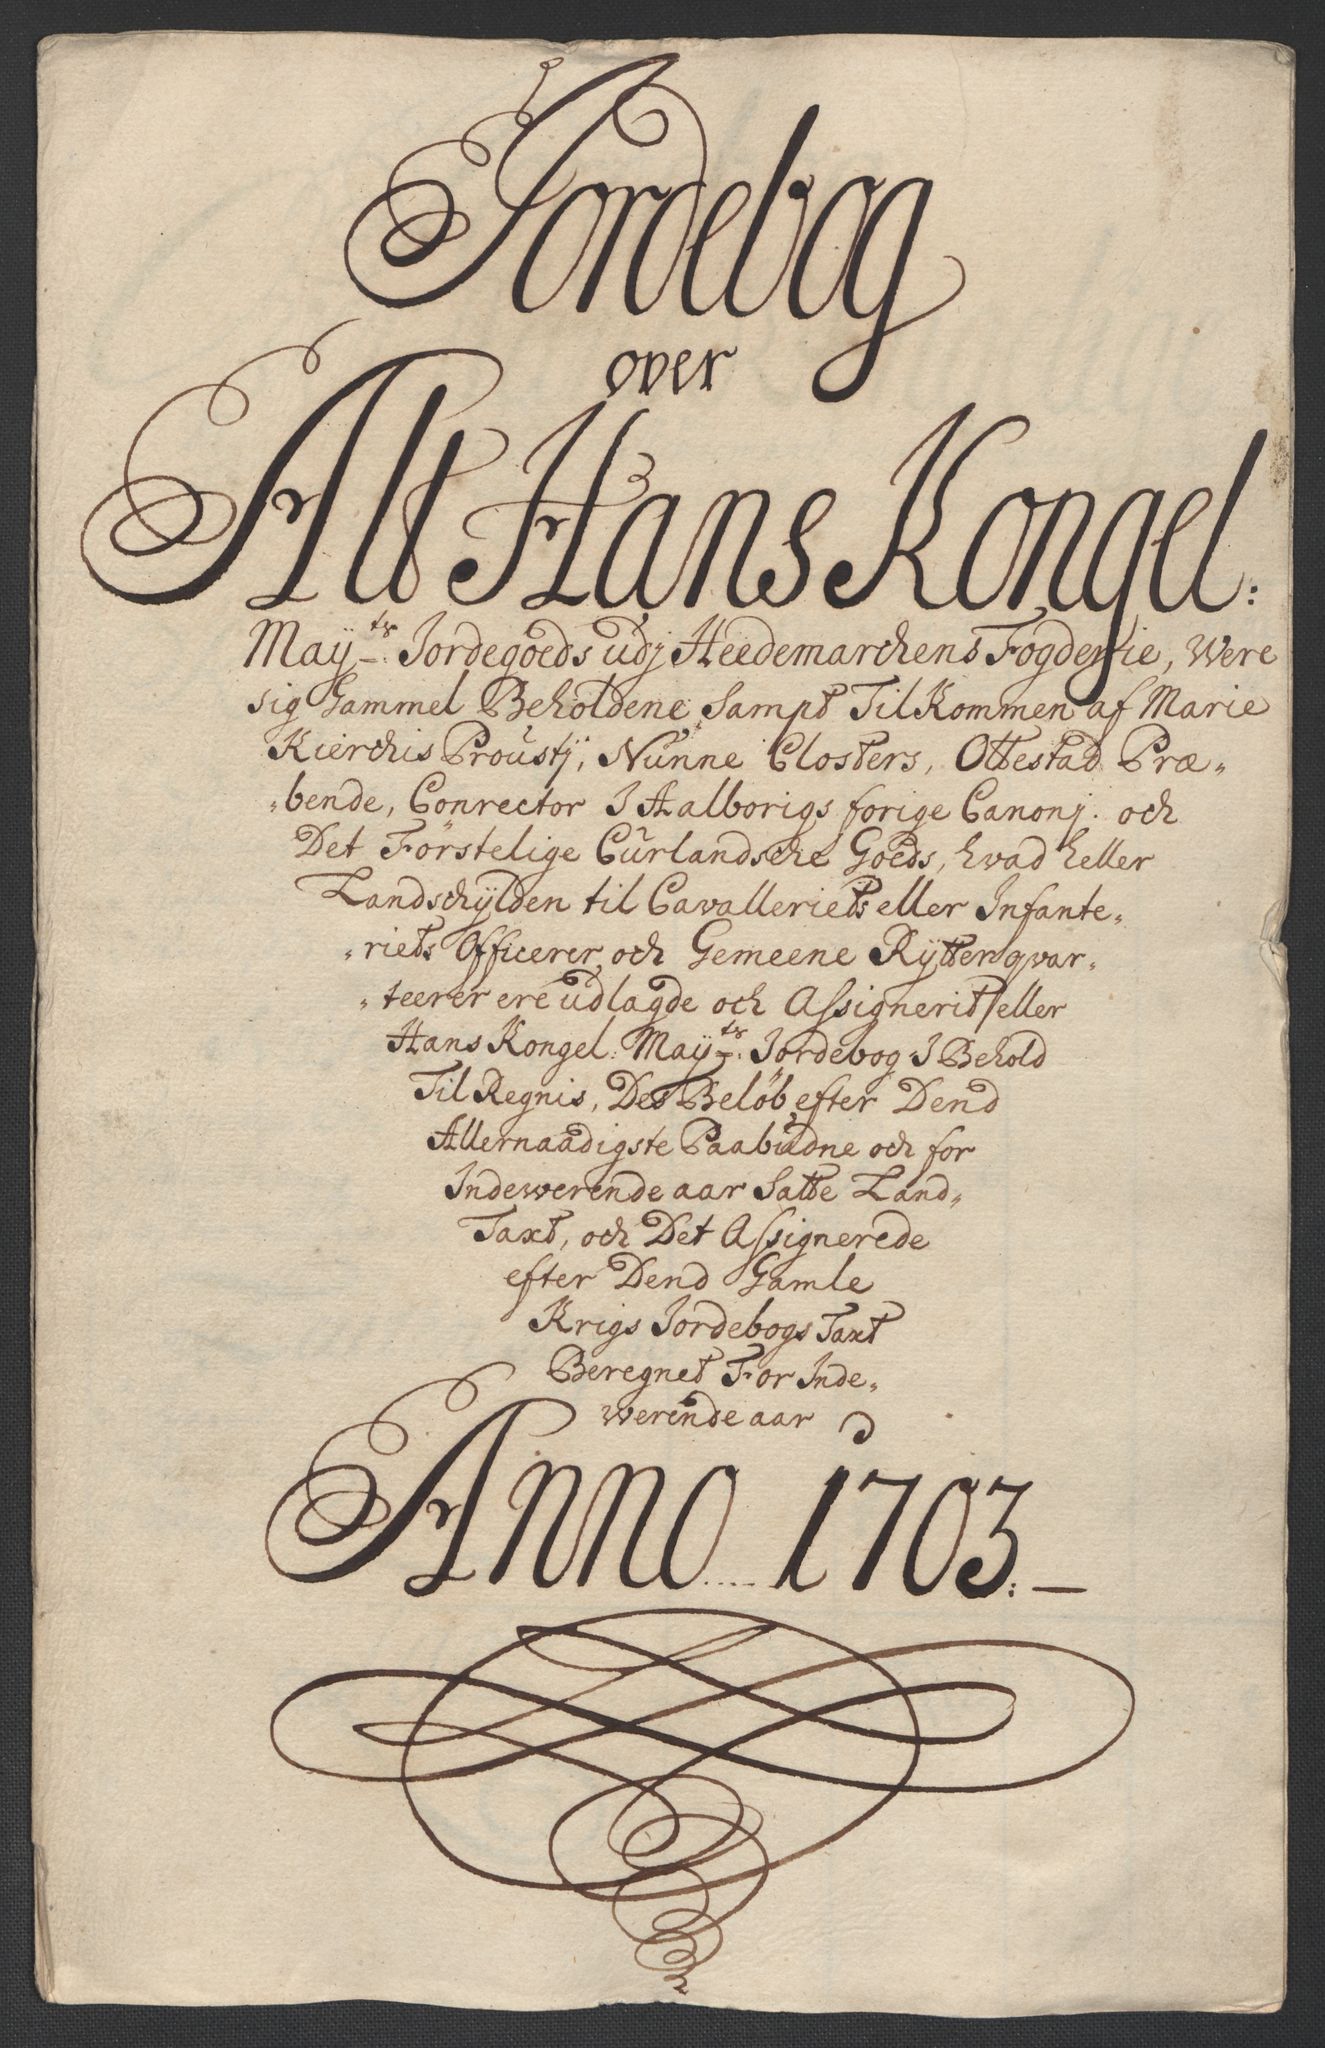 Jordebog
over
Alt Hans Kongel:
Mayts: Jordegoeds udj Heedemarchens Fogderie, Were
sig Gammel Beholdene, Sampt Tilkommen af Marie
Kierchis Proustj, Nunne Closters, Ottestad Præ„
„bende, Conrector I Aalborigs forige Canonj. och
Det Förstelige Curlandsche Goeds, hvad heller
Landschÿlden til Cavalleriets eller Infante„
„riets Officerer, och Gemeene Rÿtterqvar„
„teerer ere udlagde och Assignerit, eller
Hans Kongel: Mayts: Jordebog I Behold
Til Regnis, Des Beløb efter Dend
Allernaadigste Paabudne och for
Indewerende aar Satte Land„
Taxt, och Det Assignerede
efter Dend Gamle
Krigs Jordebogs Taxt
Beregnet For Inde„
werende aar
Anno 1703.